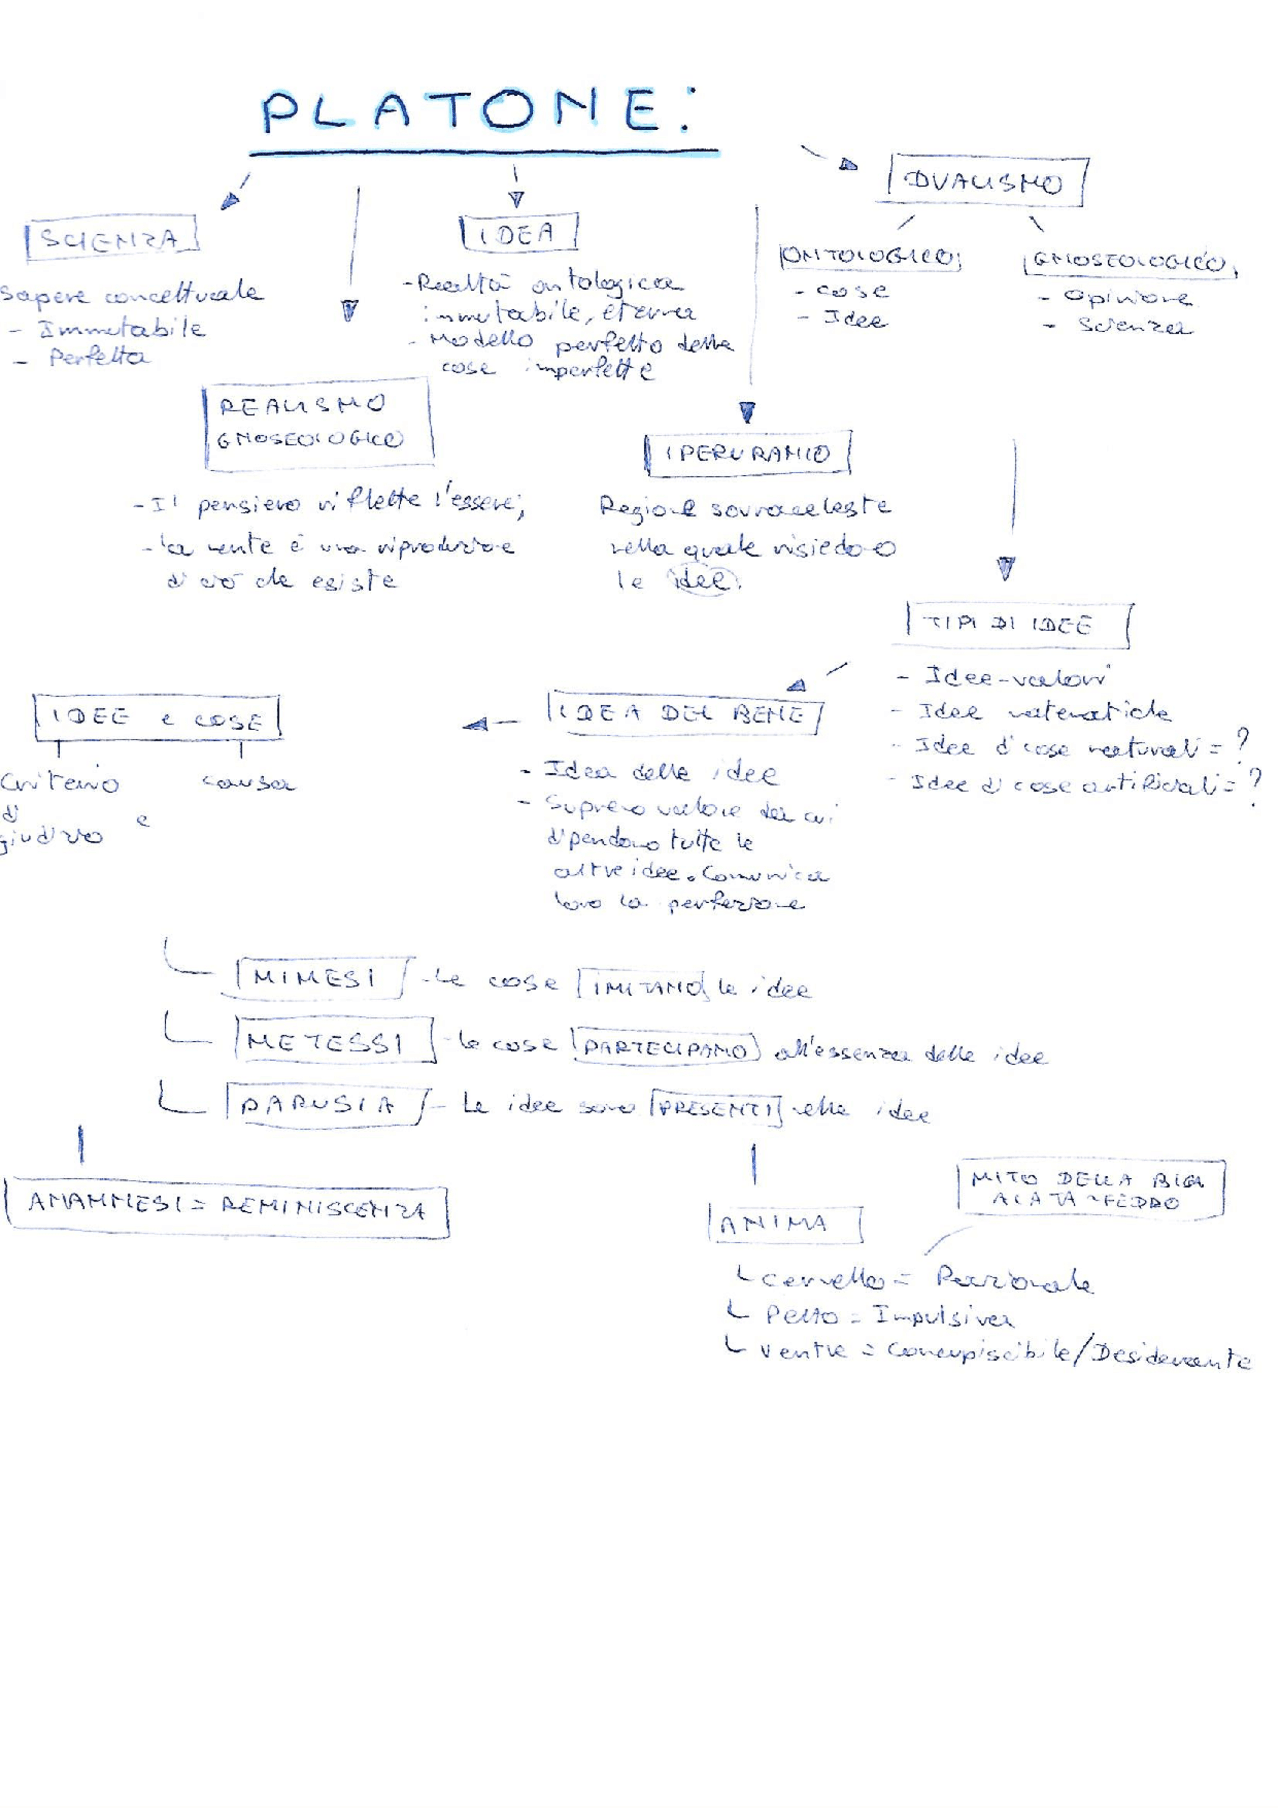 PLATONE:
SCIENZA
Sapere concettuale
- Immutabile
- Perfetta
IDEA
- Realtà ontologica
immutabile, eterna
- Modello perfetto delle
cose imperfette
DUALISMO
ONTOLOGICO:
- cose
- Idee
GNOSEOLOGICO:
- Opinione
- Scienza
REALISMO
GNOSEOLOGICO
- Il pensiero riflette l'essere;
- La mente è una riproduzione
di ciò che esiste
IPERURANIO
Regione sovraceleste
nella quale risiedono
le idee.
TIPI DI IDEE
- Idee-valori
- Idee matematiche
- Idee di cose naturali = ?
- Idee di cose artificiali = ?
IDEA DEL BENE
- Idea delle idee
- Supremo valore da cui
dipendono tutte le
altre idee. Comunica
loro la perfezione
IDEE e COSE
Criterio
di
giudizio
e
causa
MIMESI - Le cose IMITANO le idee
METESSI - le cose PARTECIPANO all'essenza delle idee
PARUSIA - Le idee sono PRESENTI nelle idee
ANAMNESI = REMINISCENZA
ANIMA
MITO DELLA BIGA
ALATA - FEDRO
Cervello = Razionale
Petto = Impulsiva
Ventre = Concupiscibile/Desiderante